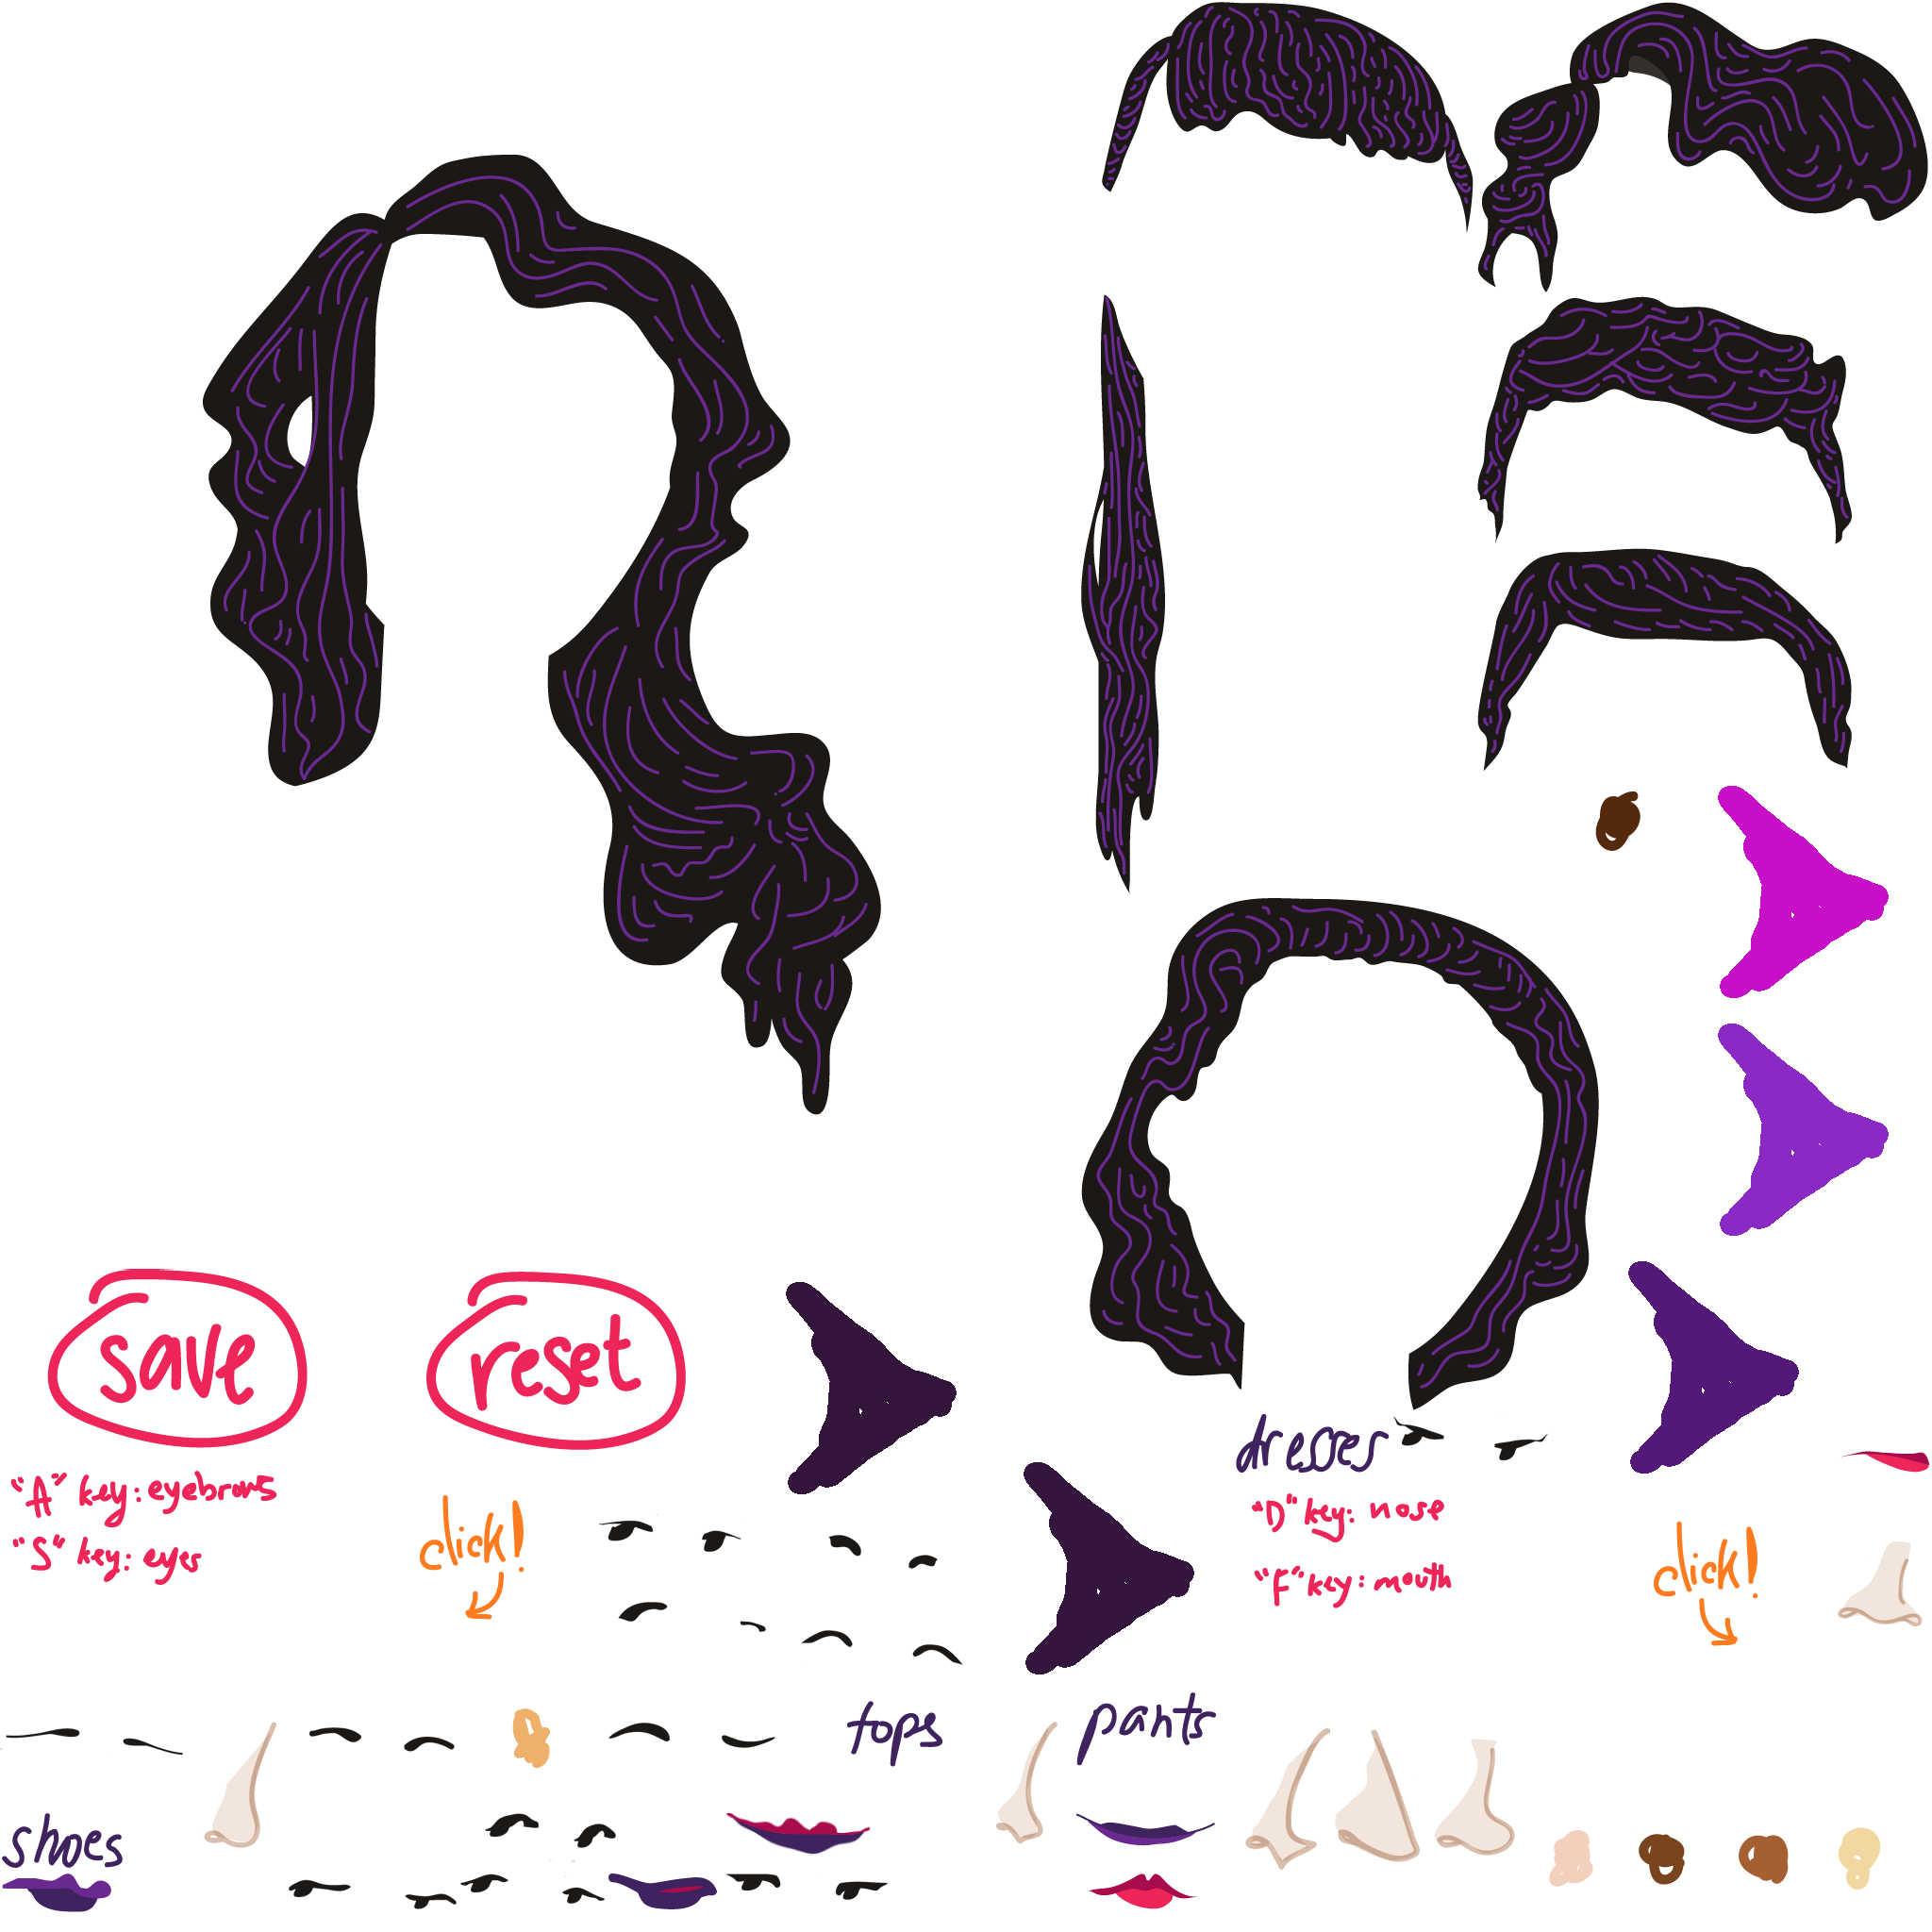 save
reset
"A" key: eyebrows
"S" key: eyes
click!
dresses
"D" key: nose
"F" key: mouth
click!
tops
pants
shoes